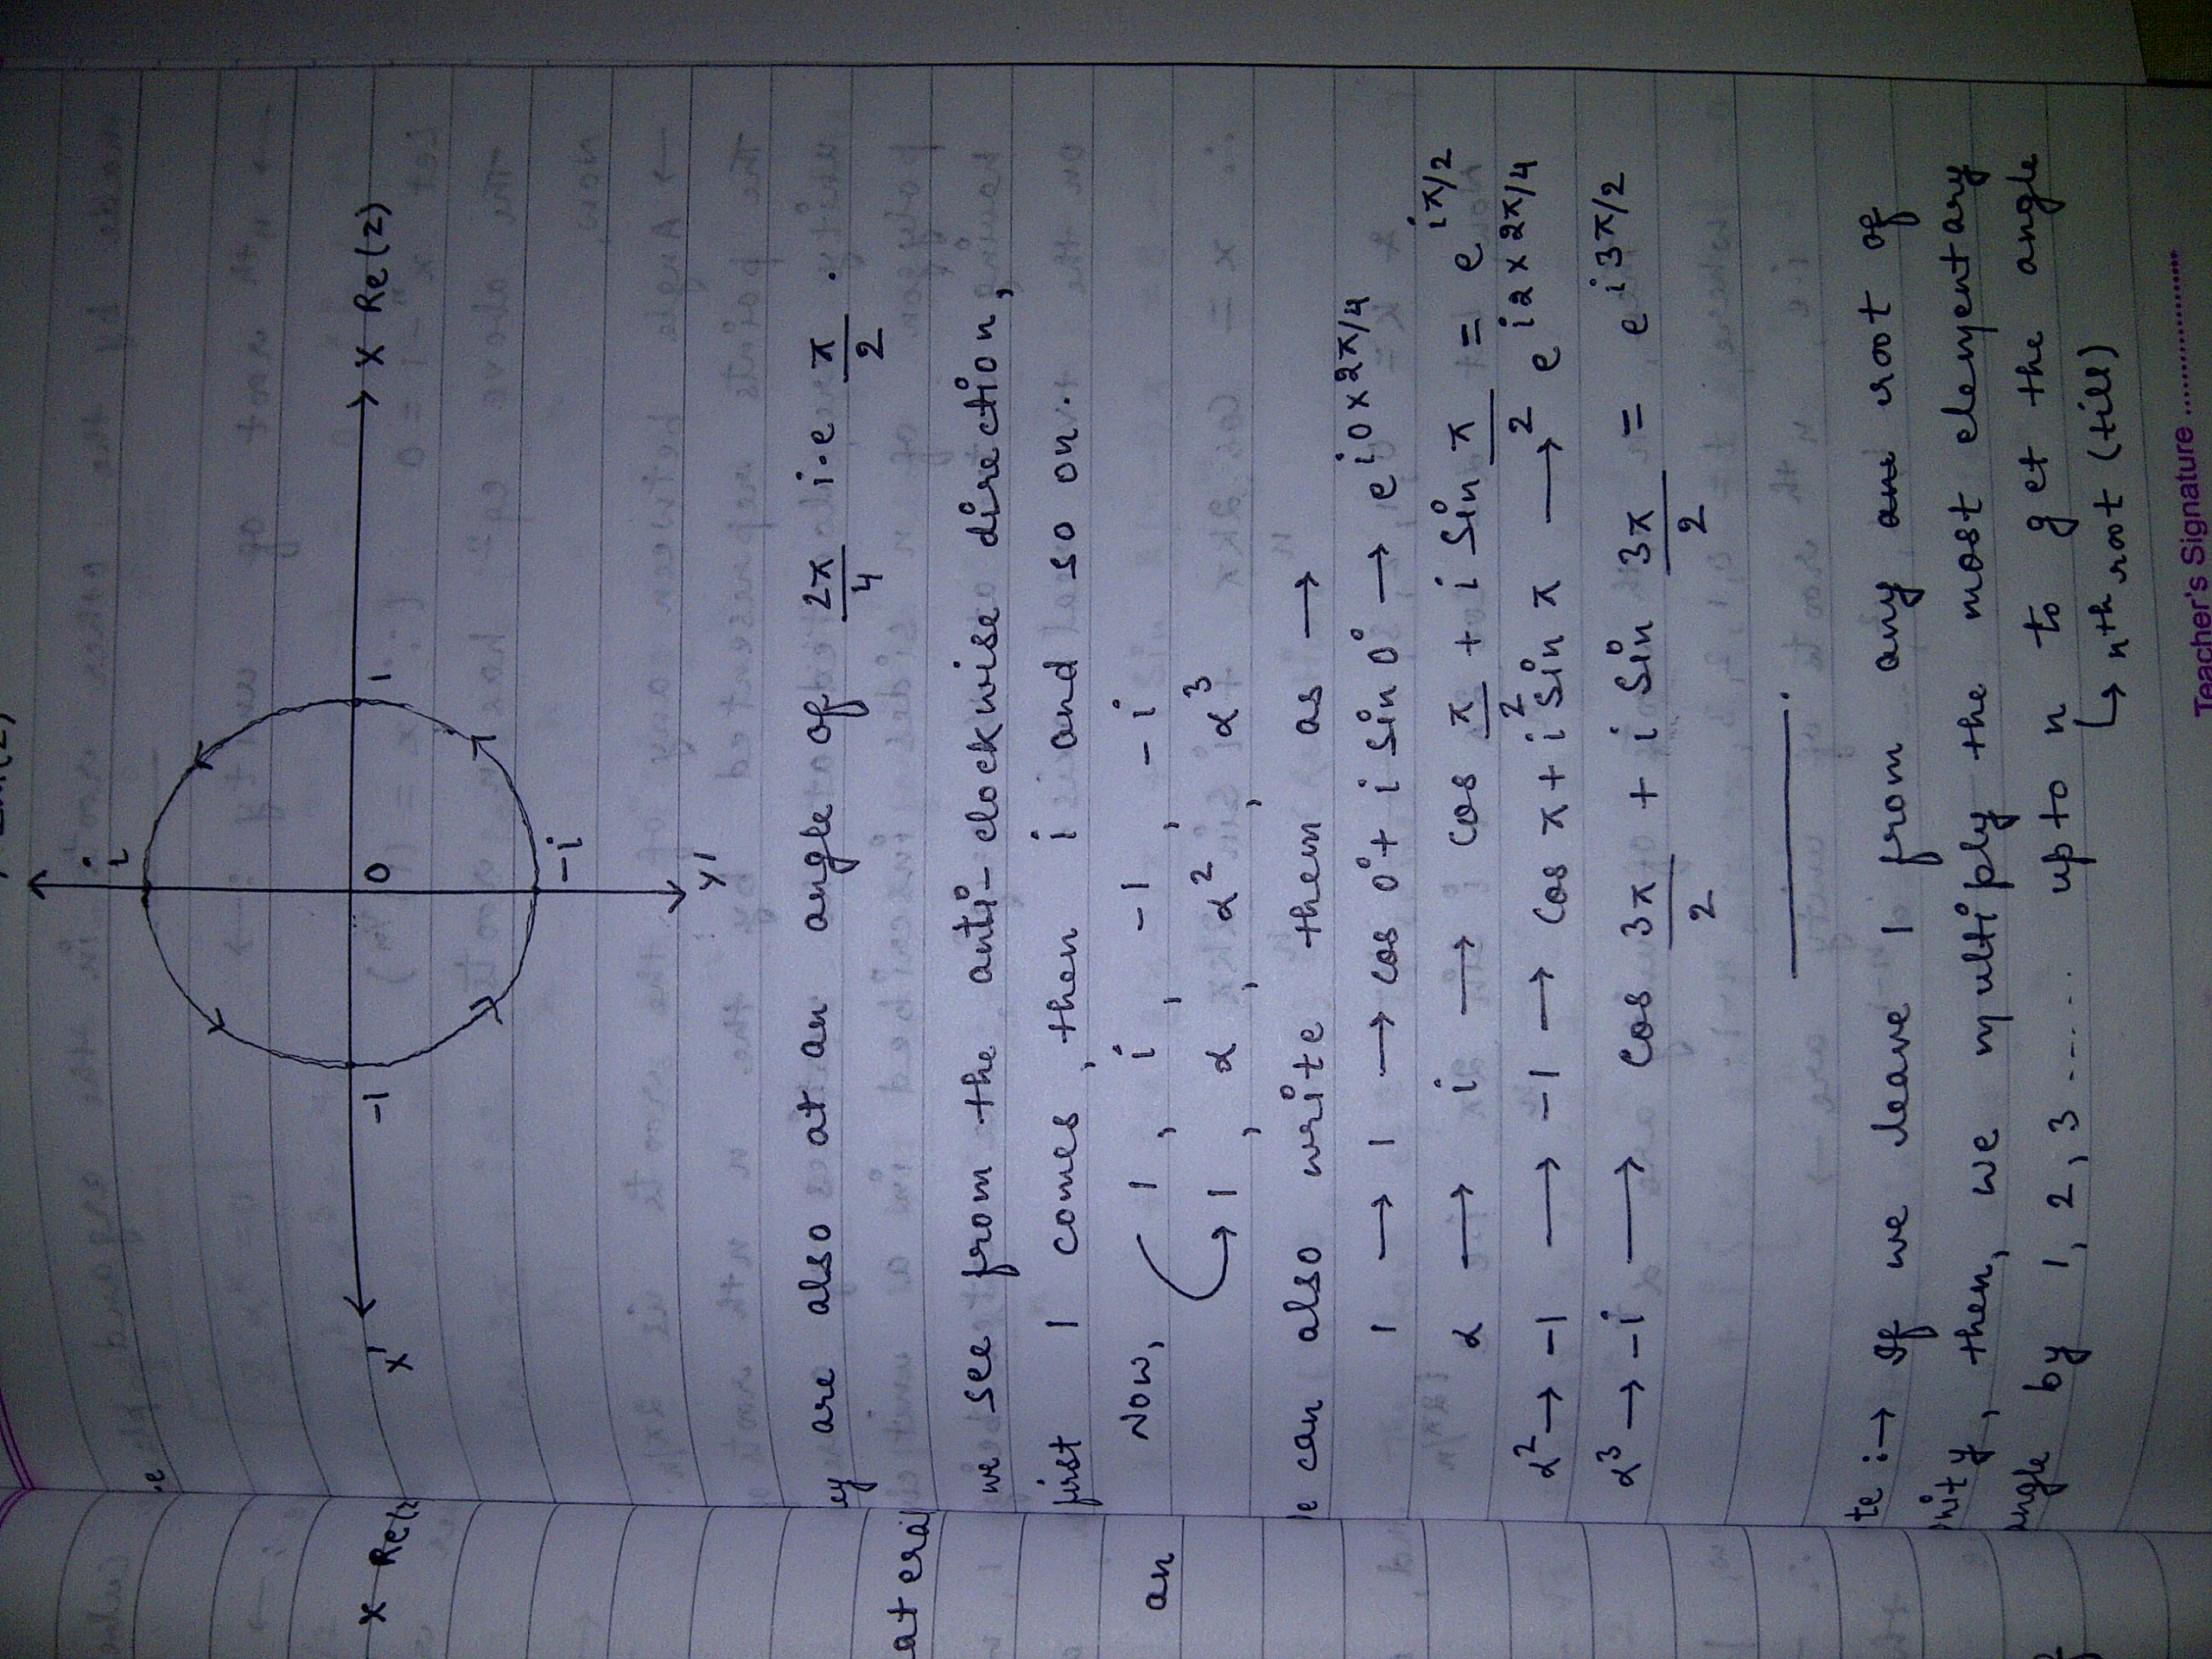 i
-1
0
1
X'
X Re(z)
X Re(z
-i
Y'
are also at an angle of 2π/4 i.e π/2 .
ateral
we see from the anti-clockwise direction,
first 1 comes, then i and so on.
an
Now, 1 , i , -1 , -i
1 , α , α² , α³
e can also write them as →
1 → 1 → cos 0° + i sin 0° → e^{i0×2π/4}
α → i → cos π/2 + i sin π/2 = e^{iπ/2}
α² → -1 → -1 → cos π + i sin π → e^{i2×2π/4}
α³ → -i → cos 3π/2 + i sin 3π/2 = e^{i3π/2}
te :→ If we leave 1 from any root of
nity, then, we multiply the most elementary
angle by 1, 2, 3 ..... upto n to get the angle
↳ nth root (till)
Teacher's Signature ....................